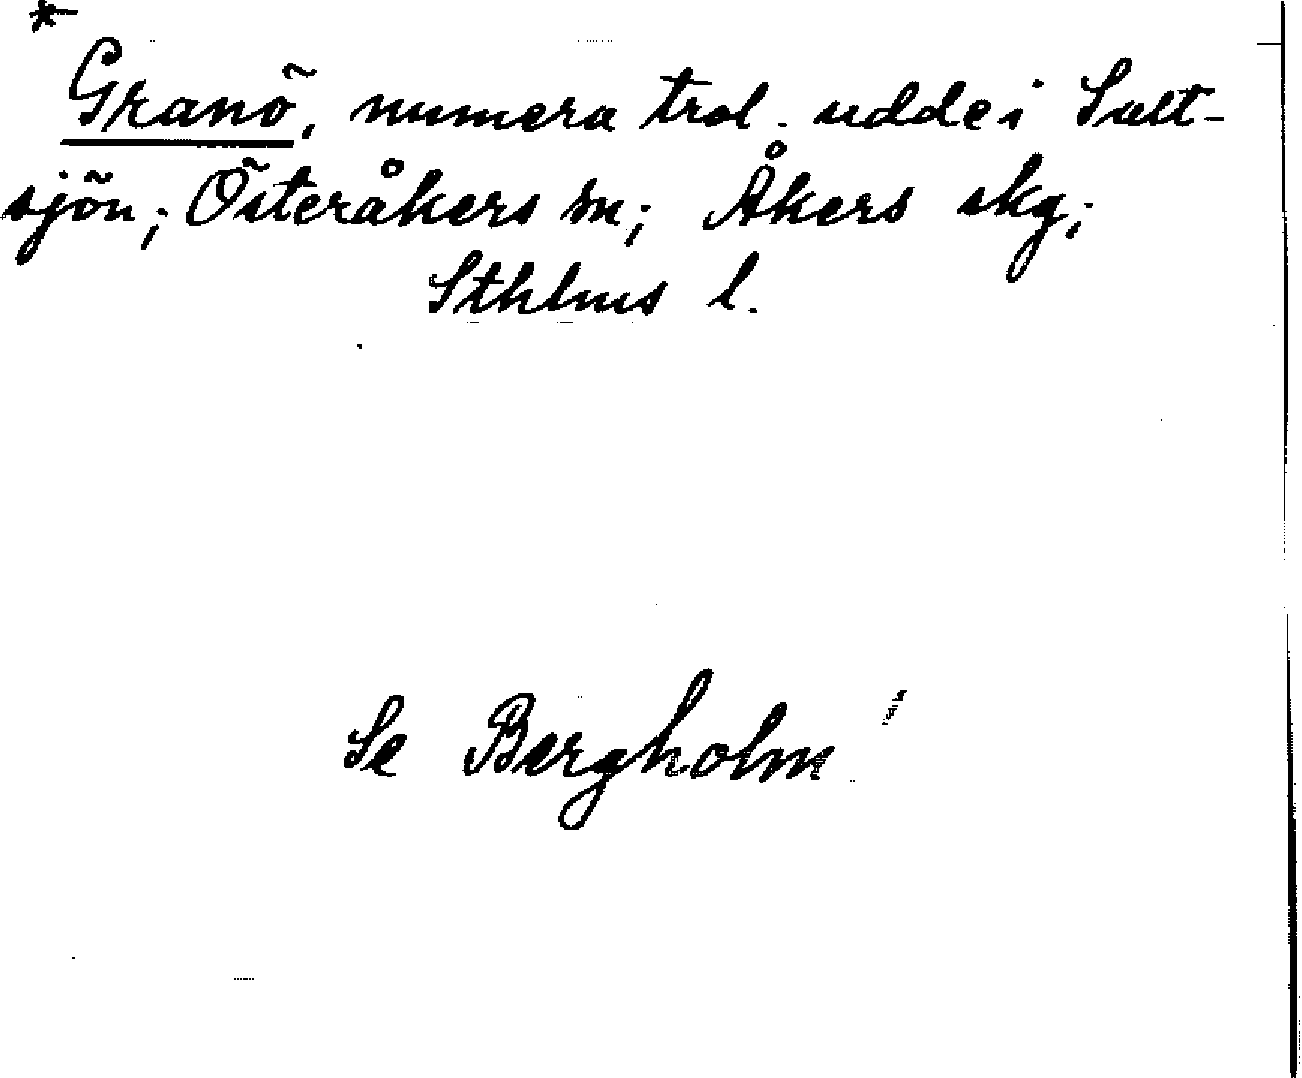 *
Granö, numera trol. udde i Salt-
sjön; Österåkers sn; Åkers skg;
Sthlms l.
Se Bergholm